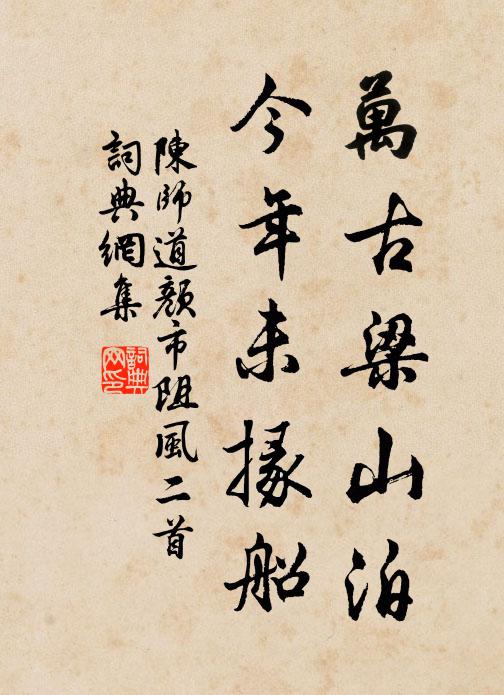 萬古梁山泊
今年未掾船
陳師道顏市阻風二首
詞典網集
詞典網印